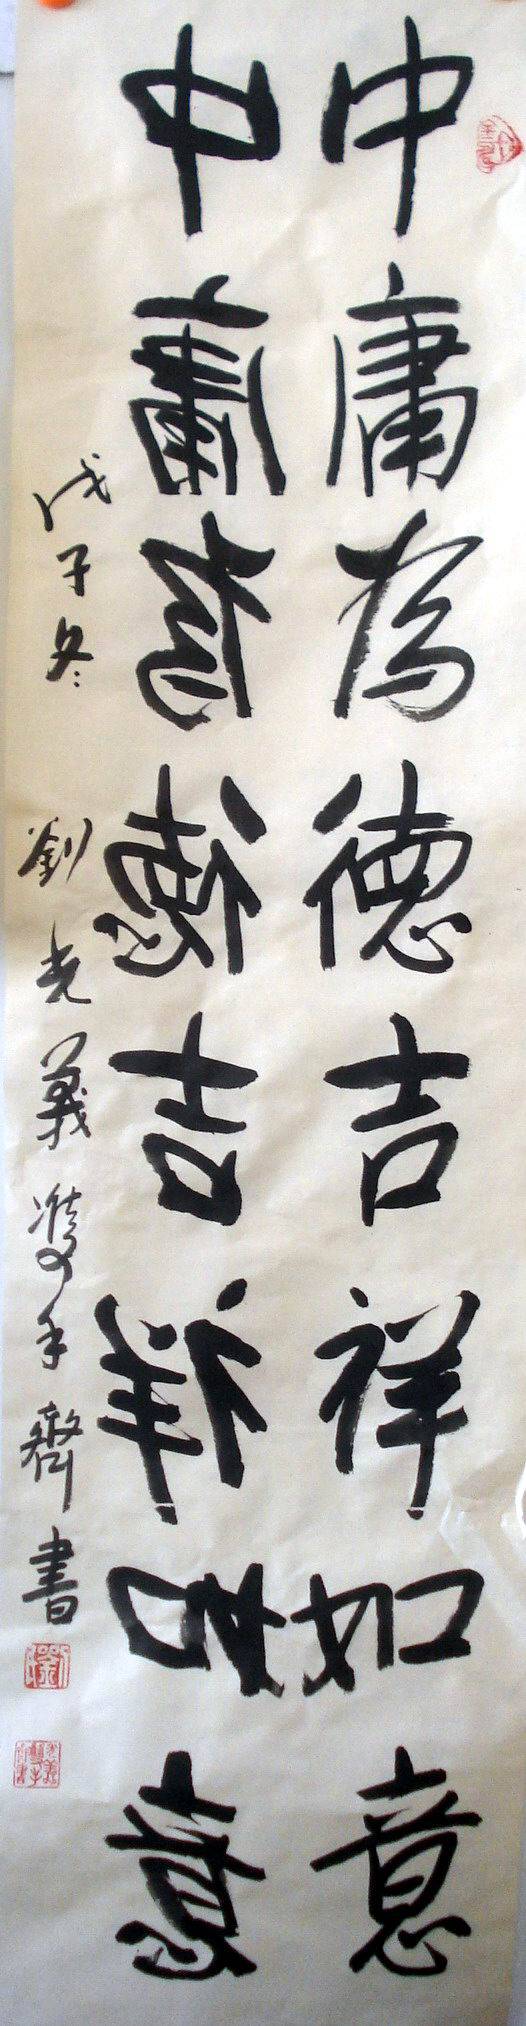 中庸为德吉祥如意
中庸为德吉祥如意
戊子冬 劉光義雙手齊書